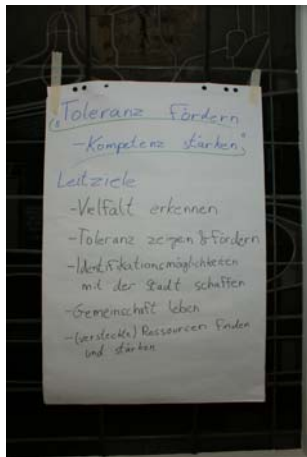 „Toleranz fördern
-Kompetenz stärken“
Leitziele
-Vielfalt erkennen
-Toleranz zeigen & fördern
-Identifikationsmöglichkeiten
mit der Stadt schaffen
-Gemeinschaft leben
-(versteckte) Ressourcen finden
und stärken